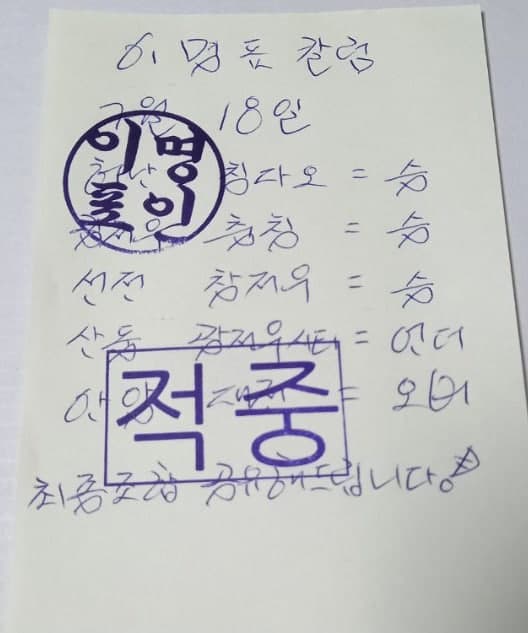 이명표 칼럼
7월 18일
허난 칭다오 = 승
충칭 = 승
선전 창저우 = 승
산둥 광저우시티 = 언더
안양 대전 = 오버
최종조합 공유해드립니다
이명
인
적중